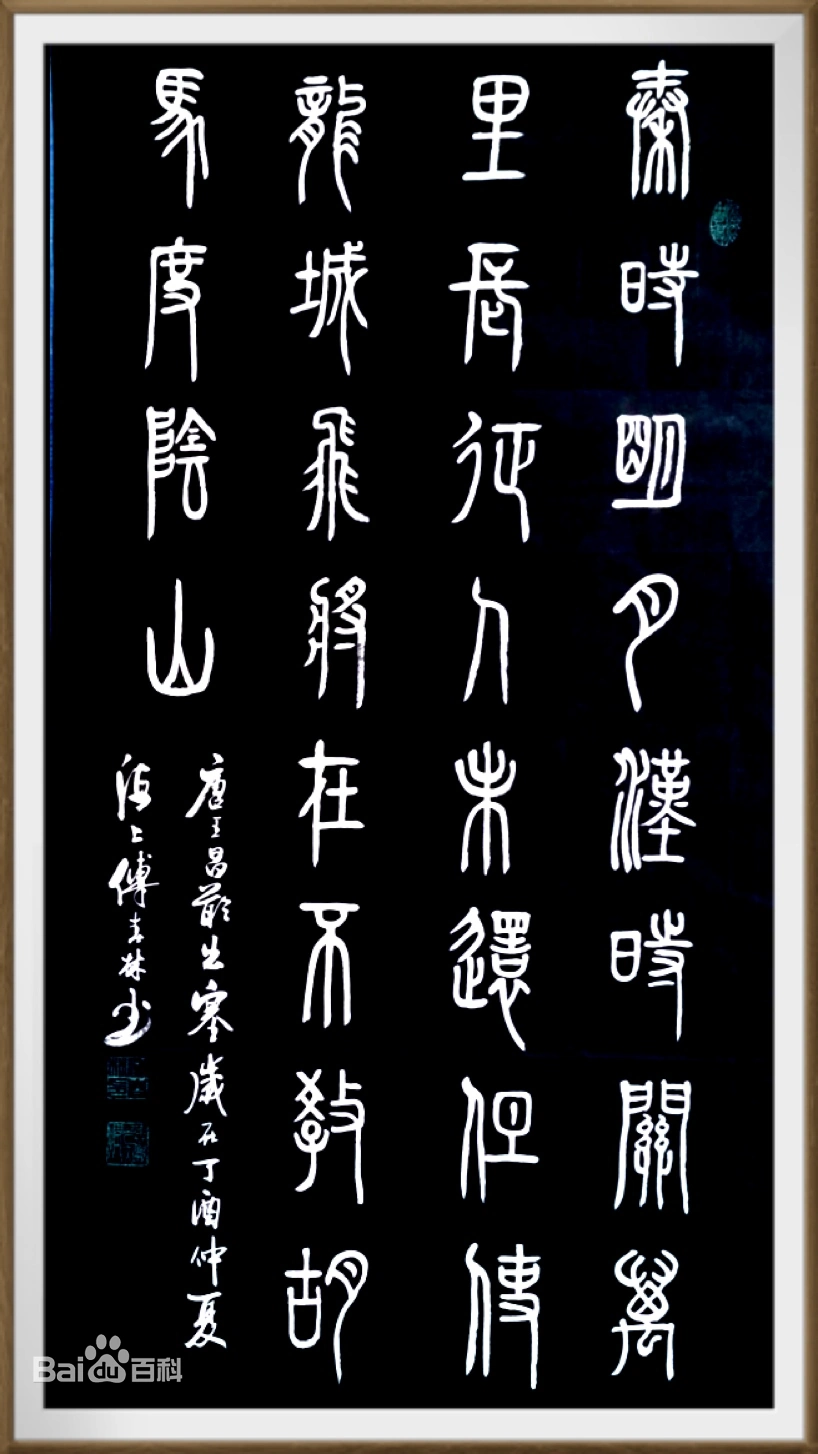 秦時明月漢時關萬
里長征人未還但使
龍城飛將在不教胡
馬度陰山
唐王昌齡出塞歲在丁酉仲夏
海上傅林书
Baidu百科